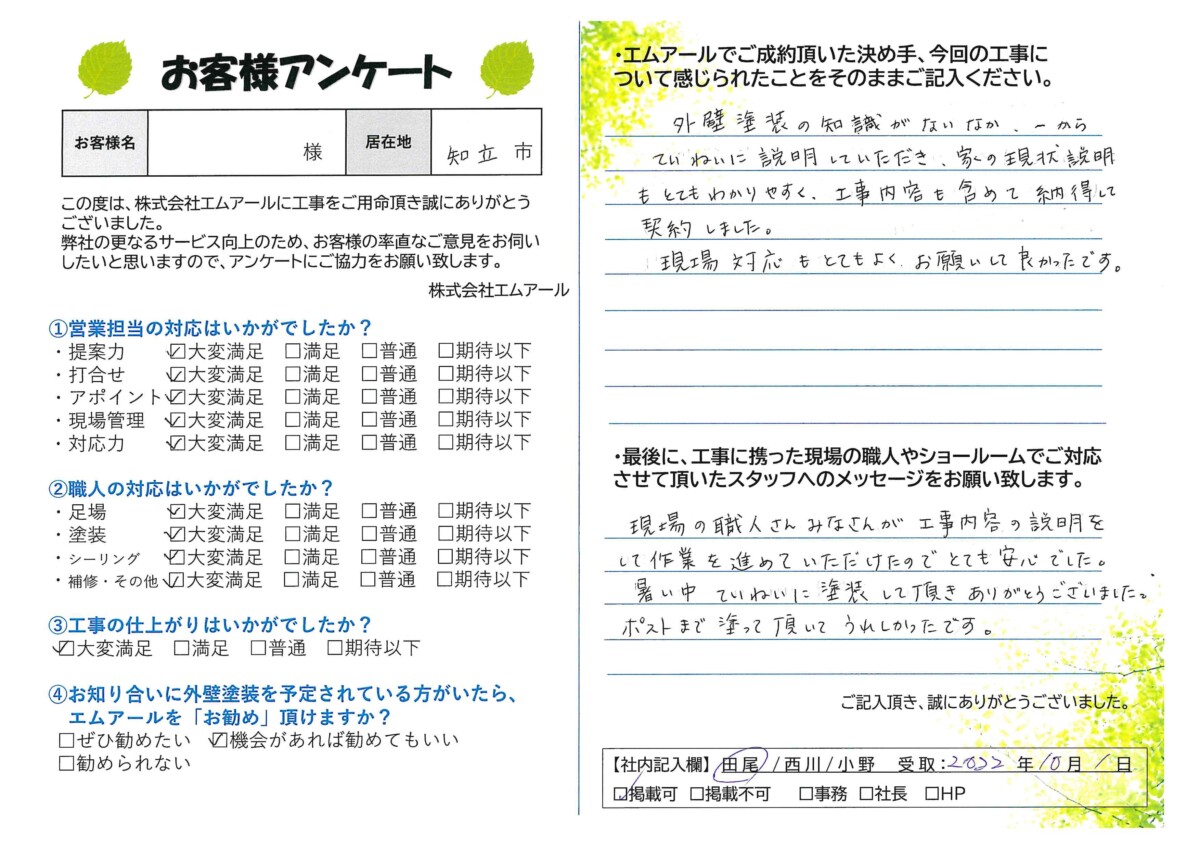 お客様アンケート
お客様名 様 居在地 知立 市
この度は、株式会社エムアールに工事をご用命頂き誠にありがとう
ございました。
弊社の更なるサービス向上のため、お客様の率直なご意見をお伺い
したいと思いますので、アンケートにご協力をお願い致します。
株式会社エムアール
①営業担当の対応はいかがでしたか？
・提案力 ☑大変満足 □満足 □普通 □期待以下
・打合せ ☑大変満足 □満足 □普通 □期待以下
・アポイント ☑大変満足 □満足 □普通 □期待以下
・現場管理 ☑大変満足 □満足 □普通 □期待以下
・対応力 ☑大変満足 □満足 □普通 □期待以下
②職人の対応はいかがでしたか？
・足場 ☑大変満足 □満足 □普通 □期待以下
・塗装 ☑大変満足 □満足 □普通 □期待以下
・シーリング ☑大変満足 □満足 □普通 □期待以下
・補修・その他 ☑大変満足 □満足 □普通 □期待以下
③工事の仕上がりはいかがでしたか？
☑大変満足 □満足 □普通 □期待以下
④お知り合いに外壁塗装を予定されている方がいたら、
エムアールを「お勧め」頂けますか？
□ぜひ勧めたい ☑機会があれば勧めてもいい
□勧められない
・エムアールでご成約頂いた決め手、今回の工事に
ついて感じられたことをそのままご記入ください。
外壁塗装の知識がないなか、一から
ていねいに説明していただき、家の現状説明
もとてもわかりやすく、工事内容も含めて納得して
契約しました。
現場対応もとてもよく、お願いして良かったです。
・最後に、工事に携った現場の職人やショールームでご対応
させて頂いたスタッフへのメッセージをお願い致します。
現場の職人さんみなさんが工事内容の説明を
して作業を進めていただけたのでとても安心でした。
暑い中ていねいに塗装して頂きありがとうございました。
ポストまで塗って頂いてうれしかったです。
ご記入頂き、誠にありがとうございました。
【社内記入欄】 田尾/西川/小野 受取：2022年10月1日
☑掲載可 □掲載不可 □事務 □社長 □HP